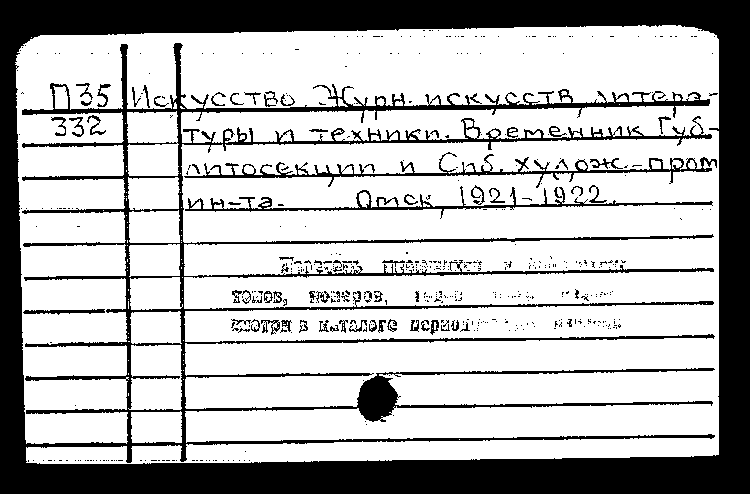 П35 Искусство. Журн. искусств, литера-
332 туры и техники. Временник Губ-
литосекции и Сиб. худож.-пром
ин-та. Омск, 1921-1922.
Перечень имеющихся в
томов, номеров, годов
смотри в каталоге периодических изданий